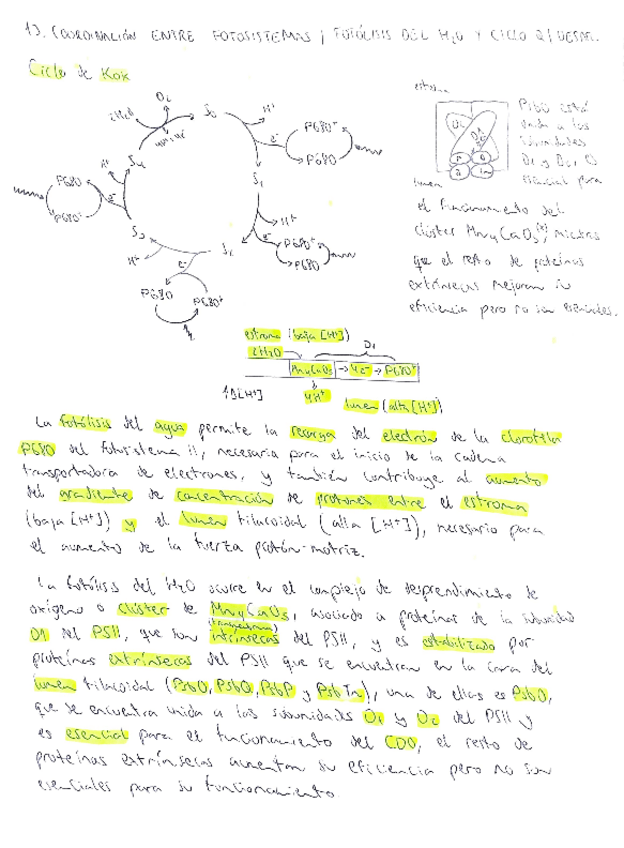 1). COORDINACIÓN ENTRE FOTOSISTEMAS; FOTÓLISIS DEL H2O Y CICLO Q/
Ciclo de Kok
O2
2H2O
S0
H+
e-
P680+
P680
S1
H+
e-
P680+
P680
S2
e-
P680
P680+
H+
S3
H+
e-
P680
P680+
S4
estroma
D2
D1
lumen
PsbO está
unida a las
subunidades
D1 y D2, O
esencial para
el funcionamiento del
clúster Mn4CaO5, mientras
que el resto de proteínas
extrínsecas mejoran su
eficiencia pero no son esenciales.
estroma (baja [H+])
2H2O
D1
Mn4CaO5 → 4e- → P680+
↑Δ[H+]
4H+
lumen (alta [H+])
La fotólisis del agua permite la recarga del electrón de la clorofila
P680 del fotosistema II, necesaria para el inicio de la cadena
transportadora de electrones, y también contribuye al aumento
del gradiente de concentración de protones entre el estroma
(baja [H+]) y el lumen tilacoidal (alta [H+]), necesario para
el aumento de la fuerza protón-motriz.
La fotólisis del H2O ocurre en el complejo de desprendimiento de
oxígeno o clúster de Mn4CaO5, asociado a proteínas de la subunidad
D1 del PSII, que son intrínsecas del PSII, y es estabilizado por
proteínas extrínsecas del PSII que se encuentran en la cara del
lumen tilacoidal (PsbO, PsbQ, PsbP y PsbTn), una de ellas es PsbO,
que se encuentra unida a las subunidades D1 y D2 del PSII y
es esencial para el funcionamiento del CDO, el resto de
proteínas extrínsecas aumentan su eficiencia pero no son
esenciales para su funcionamiento.